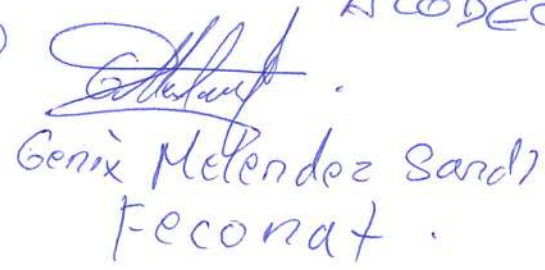 ACODEC
Genix Meléndez Sandi
Feconat.